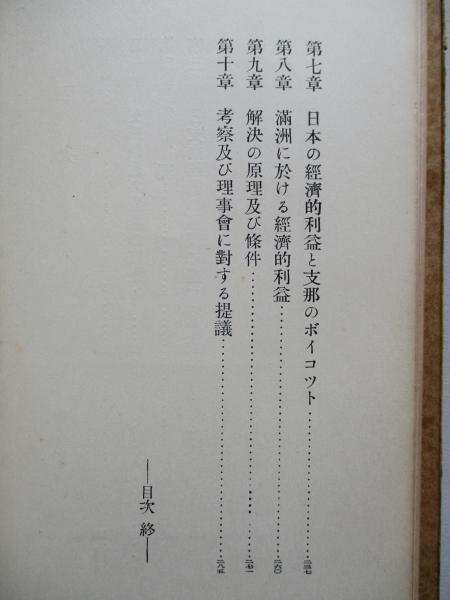 第七章 日本の經濟的利益と支那のボイコツト……………………二三七
第八章 滿洲に於ける經濟的利益……………………………二六〇
第九章 解決の原理及び條件………………………………二七一
第十章 考察及び理事會に對する提議…………………………二八五
――目次 終――